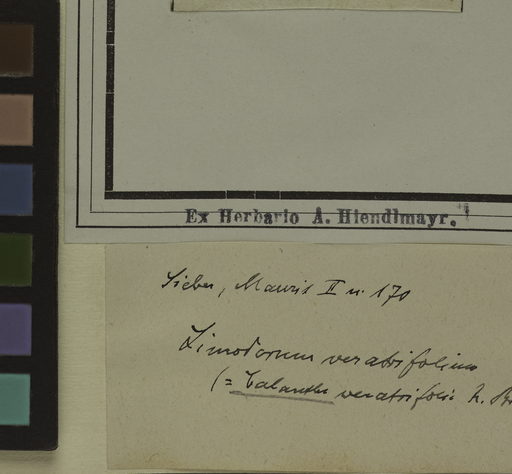 Ex Herbario A. Hiendlmayr.
Sieber, Maurit II n. 170
Limodorum veratrifolium
(= Calanthe veratrifolia R. Br